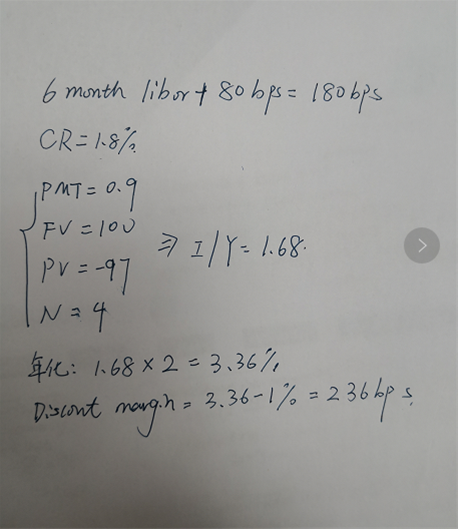 6 month libor + 80bps = 180bps
CR = 1.8%
PMT = 0.9
FV = 100
PV = -97
N = 4
⇒ I/Y = 1.68.
年化: 1.68 × 2 = 3.36%
Discont margin = 3.36 - 1% = 236bps.